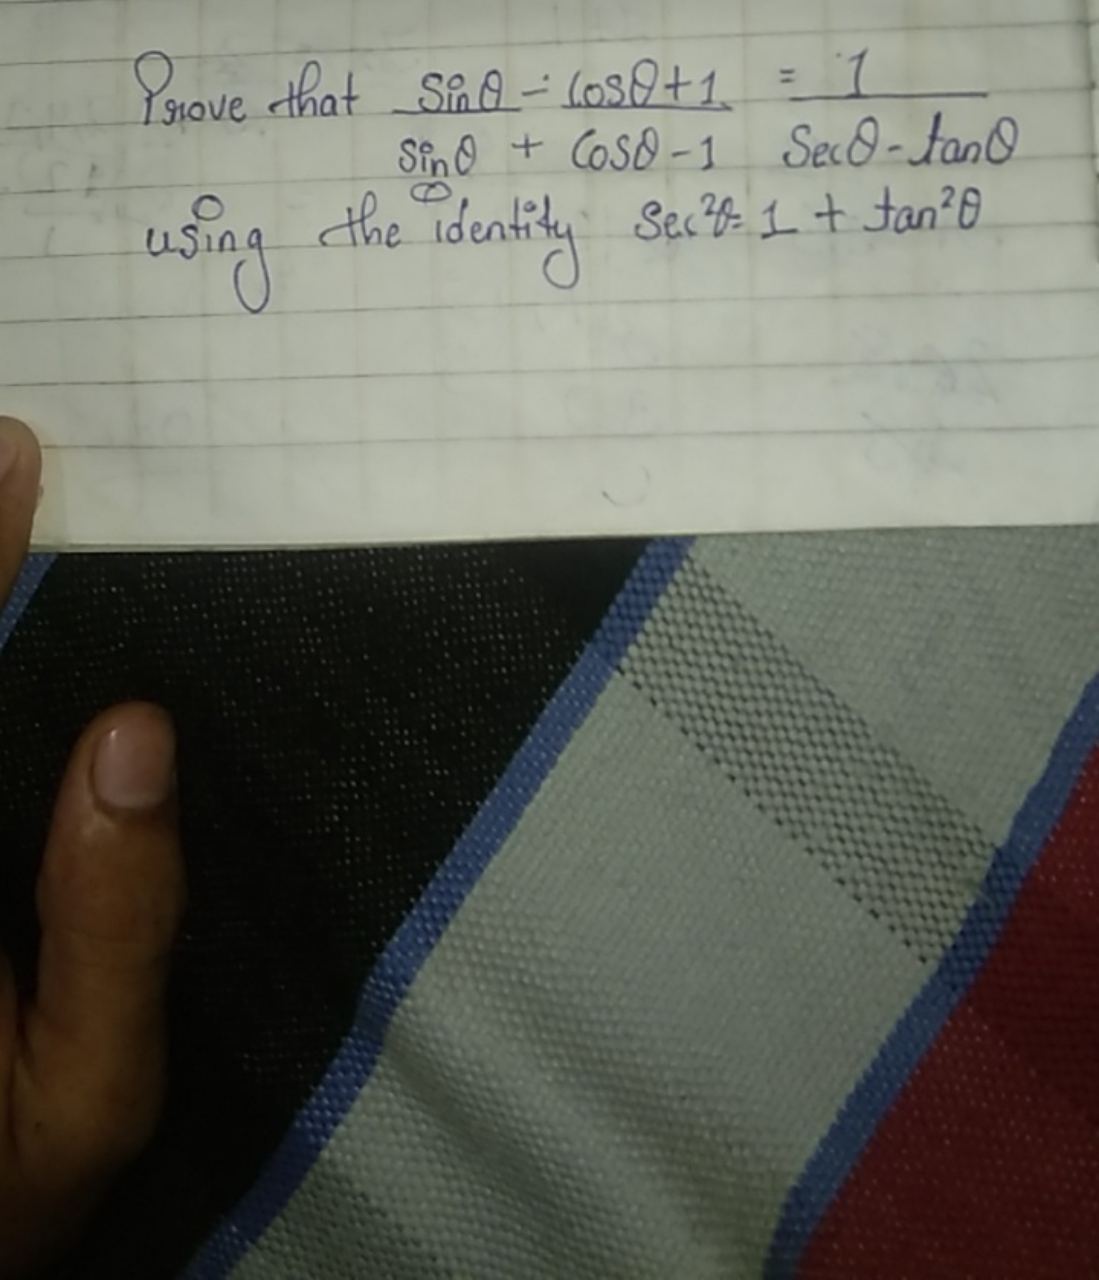 Prove that sinθ - cosθ+1 = 1
sinθ + cosθ-1 secθ-tanθ
using the identity sec²θ= 1 + tan²θ